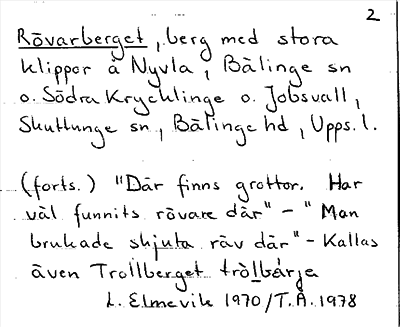 2
Rövarberget, berg med stora
klippor å Nyvla, Bälinge sn
o. Södra Krycklinge o. Jobsvall,
Skuttunge sn, Bälinge hd, Upps. l.
(forts.) "Där finns grottor. Har
väl funnits rövare där" - "Man
brukade skjuta räv där" - Kallas
även Trollberget tròlbárje
L. Elmevik 1970/T.Å. 1978